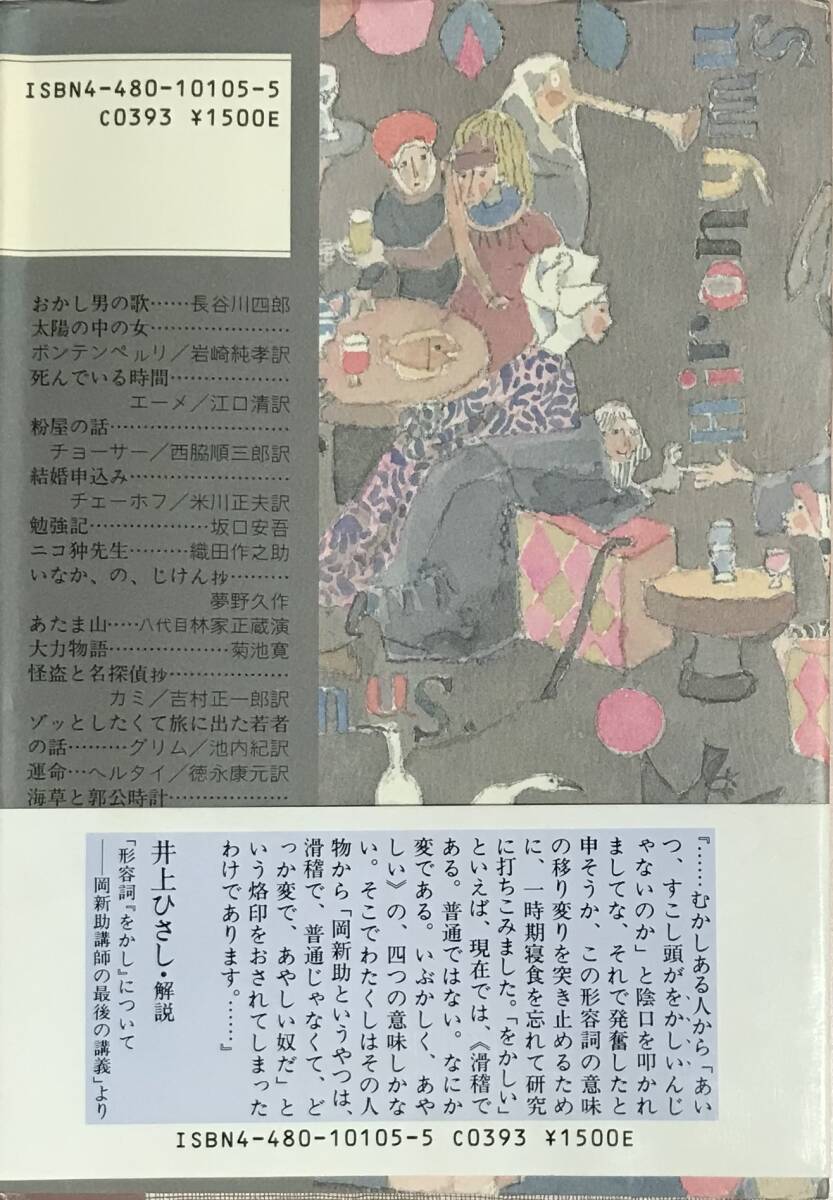 ISBN4-480-10105-5
C0393 ¥1500E
おかし男の歌……長谷川四郎
太陽の中の女…………………
ボンテンペルリ／岩崎純孝訳
死んでいる時間………………
エーメ／江口清訳
粉屋の話………………………
チョーサー／西脇順三郎訳
結婚申込み……………………
チェーホフ／米川正夫訳
勉強記………………坂口安吾
ニコ狆先生………織田作之助
いなか、の、じけん抄………
夢野久作
あたま山……八代目林家正蔵演
大力物語………………菊池寛
怪盗と名探偵抄………………
カミ／吉村正一郎訳
ゾッとしたくて旅に出た若者
の話………グリム／池内紀訳
運命…ヘルタイ／徳永康元訳
海草と郭公時計………………
Hironymu
S
nus.
『……むかしある人から「あい
つ、すこし頭がをかしいんじ
ゃないのか」と陰口を叩かれ
ましてな、それで発奮したと
申そうか、この形容詞の意味
の移り変りを突き止めるため
に、一時期寝食を忘れて研究
に打ちこみました。「をかしい」
といえば、現在では、《滑稽で
ある。普通ではない。なにか
変である。いぶかしく、あや
しい》の、四つの意味しかな
い。そこでわたくしはその人
物から「岡新助というやつは、
滑稽で、普通じゃなくて、ど
っか変で、あやしい奴だ」と
いう烙印をおされてしまった
わけであります。……』
井上ひさし・解説
「形容詞『をかし』について
――岡新助講師の最後の講義」より
ISBN4-480-10105-5 C0393 ¥1500E